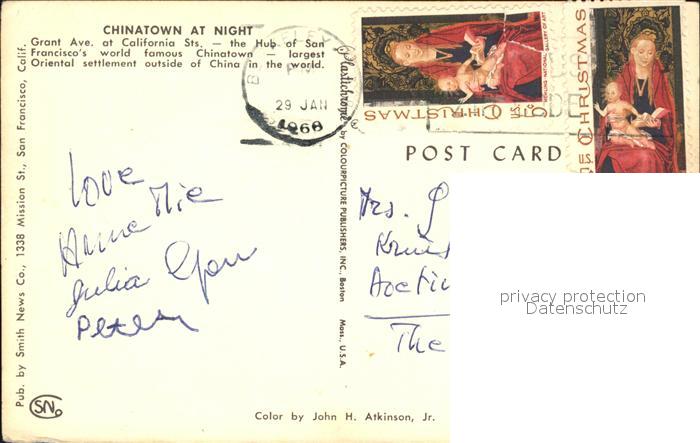 CHINATOWN AT NIGHT
Grant Ave. at California Sts. — the Hub of San
Francisco's world famous Chinatown — largest
Oriental settlement outside of China in the world.
Pub. by Smith News Co., 1338 Mission St., San Francisco, Calif.
SN
Plastichrome® by COLOURPICTURE PUBLISHERS, INC., Boston Mass., U.S.A.
29 JAN
1968
CHRISTMAS
U.S.
CHRISTMAS
U.S.
POST CARD
Love
Anna Mie
Julia
Peter
Mrs.
The
privacy protection
Datenschutz
Color by John H. Atkinson, Jr.